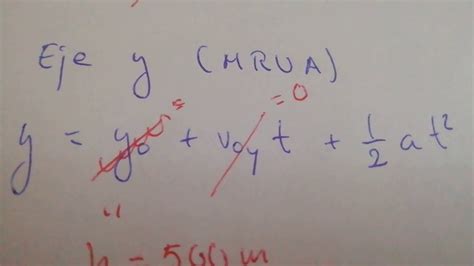 Eje y (MRUA)
= 0
y = y₀ + v₀y t + ½ a t²
h = 500 m